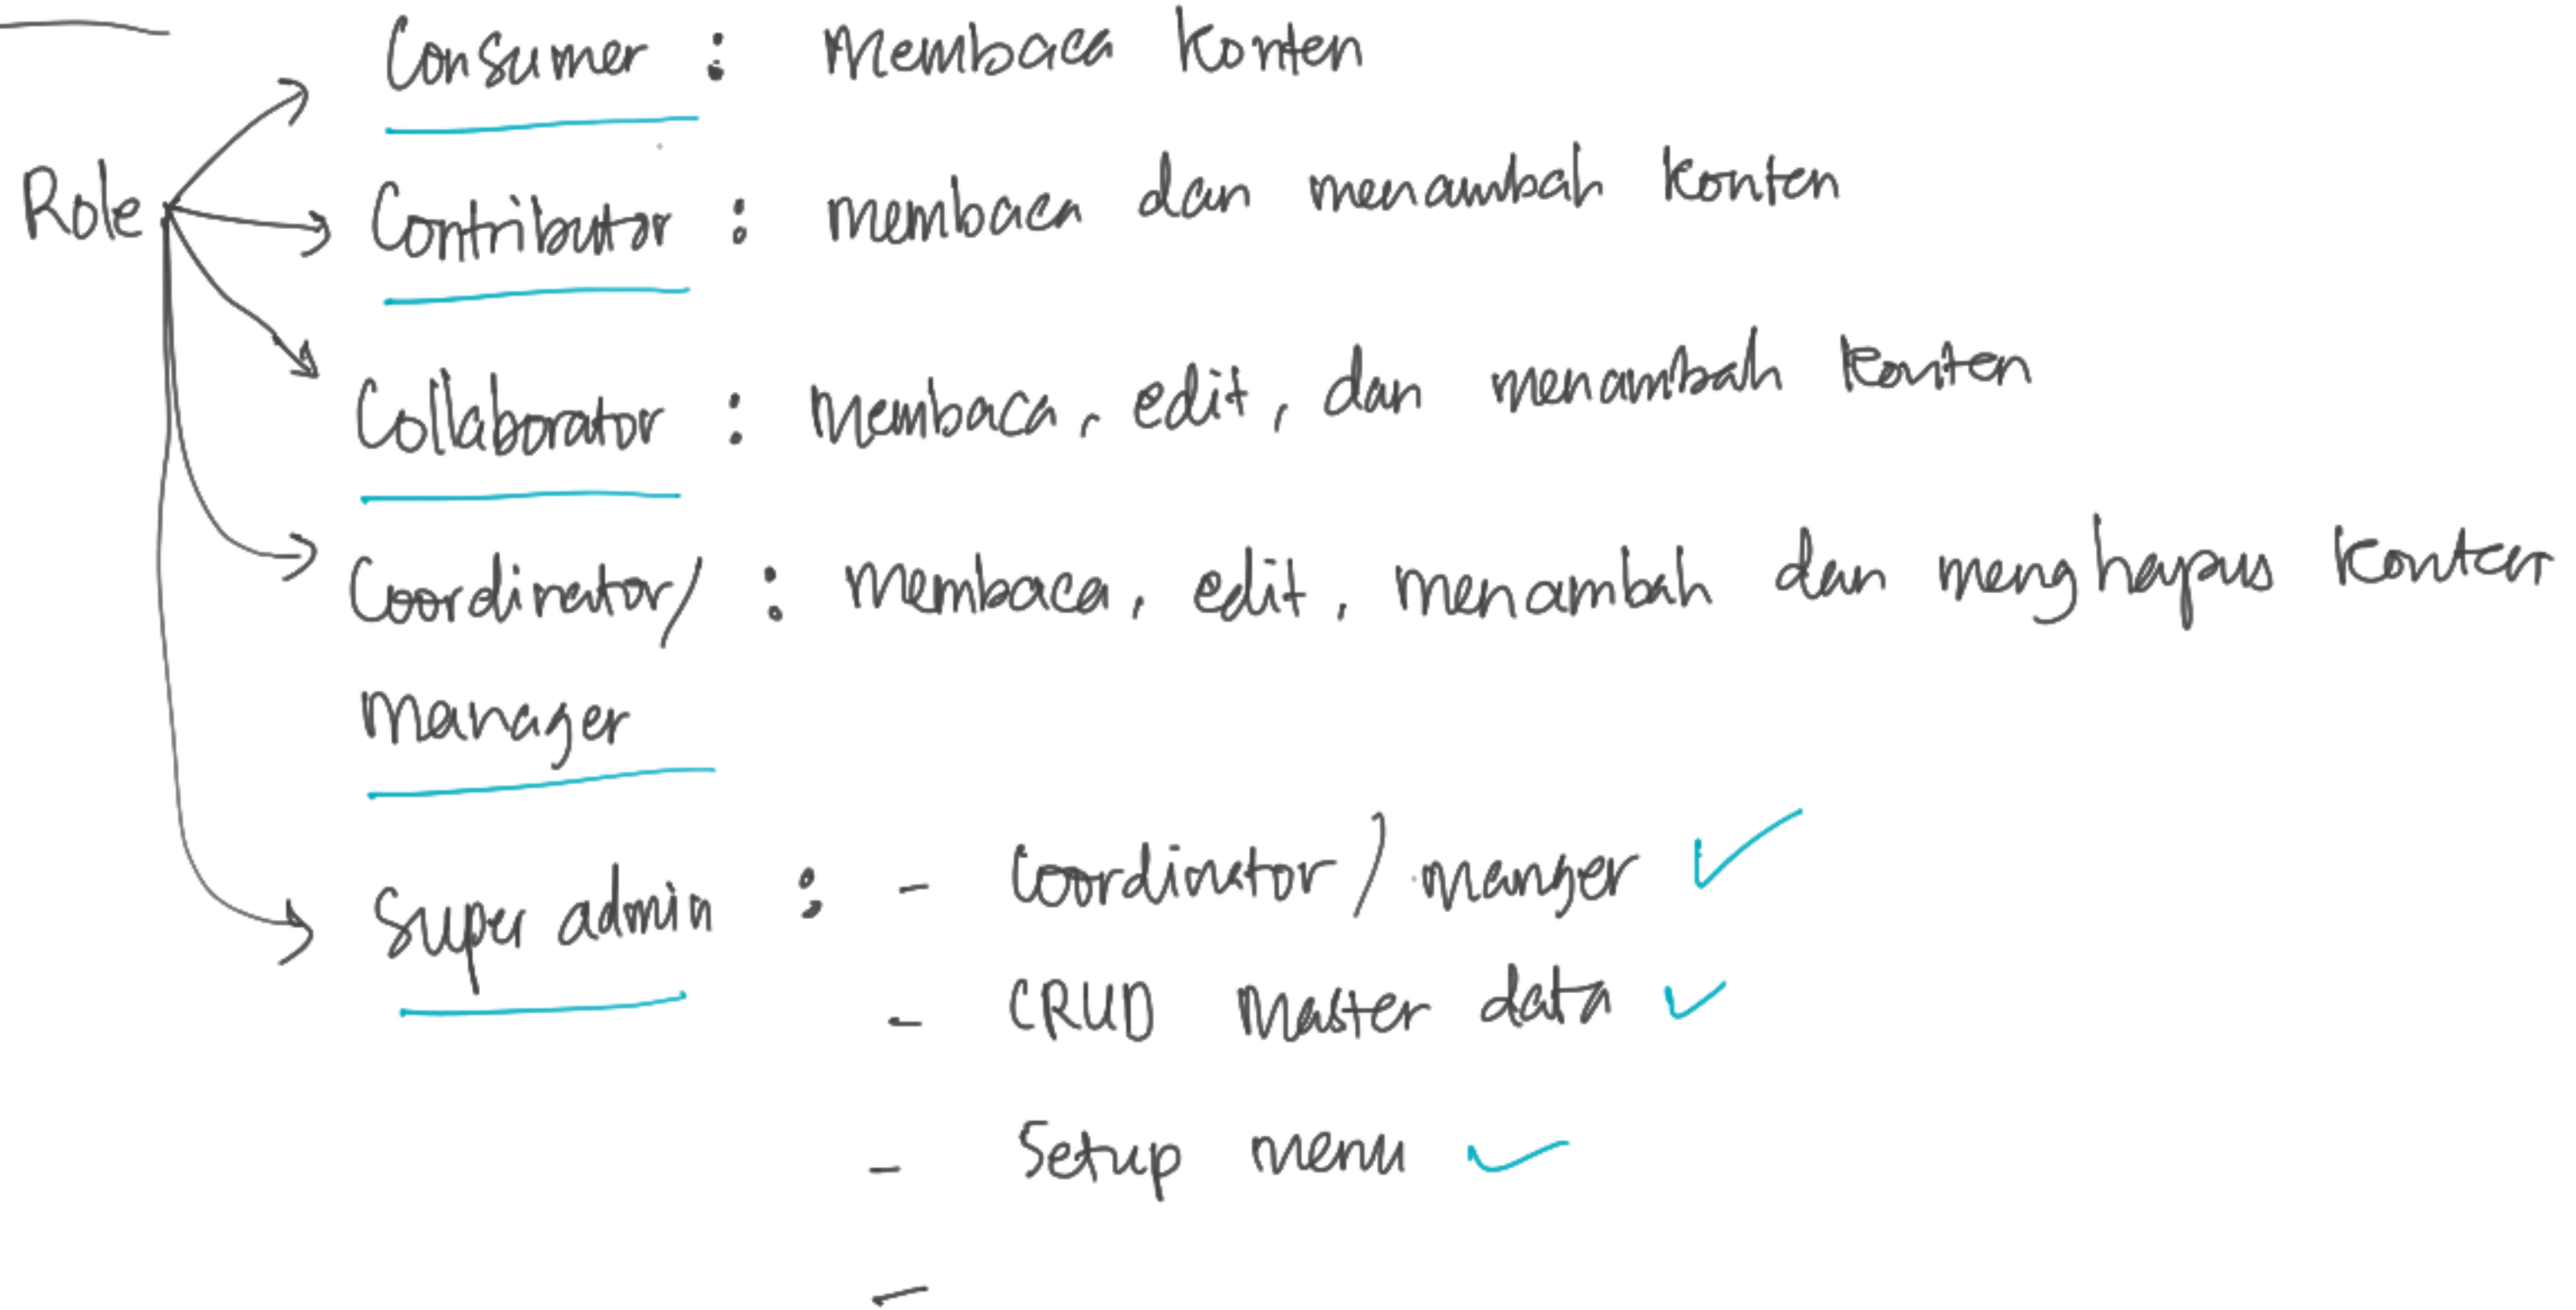 Consumer : membaca konten
Role
Contributor : membaca dan menambah konten
Collaborator : membaca, edit, dan menambah konten
Coordinator/ : membaca, edit, menambah dan menghapus konten
manager
Super admin : - Coordinator / manger ✓
- CRUD Master data ✓
- Setup menu ✓
-